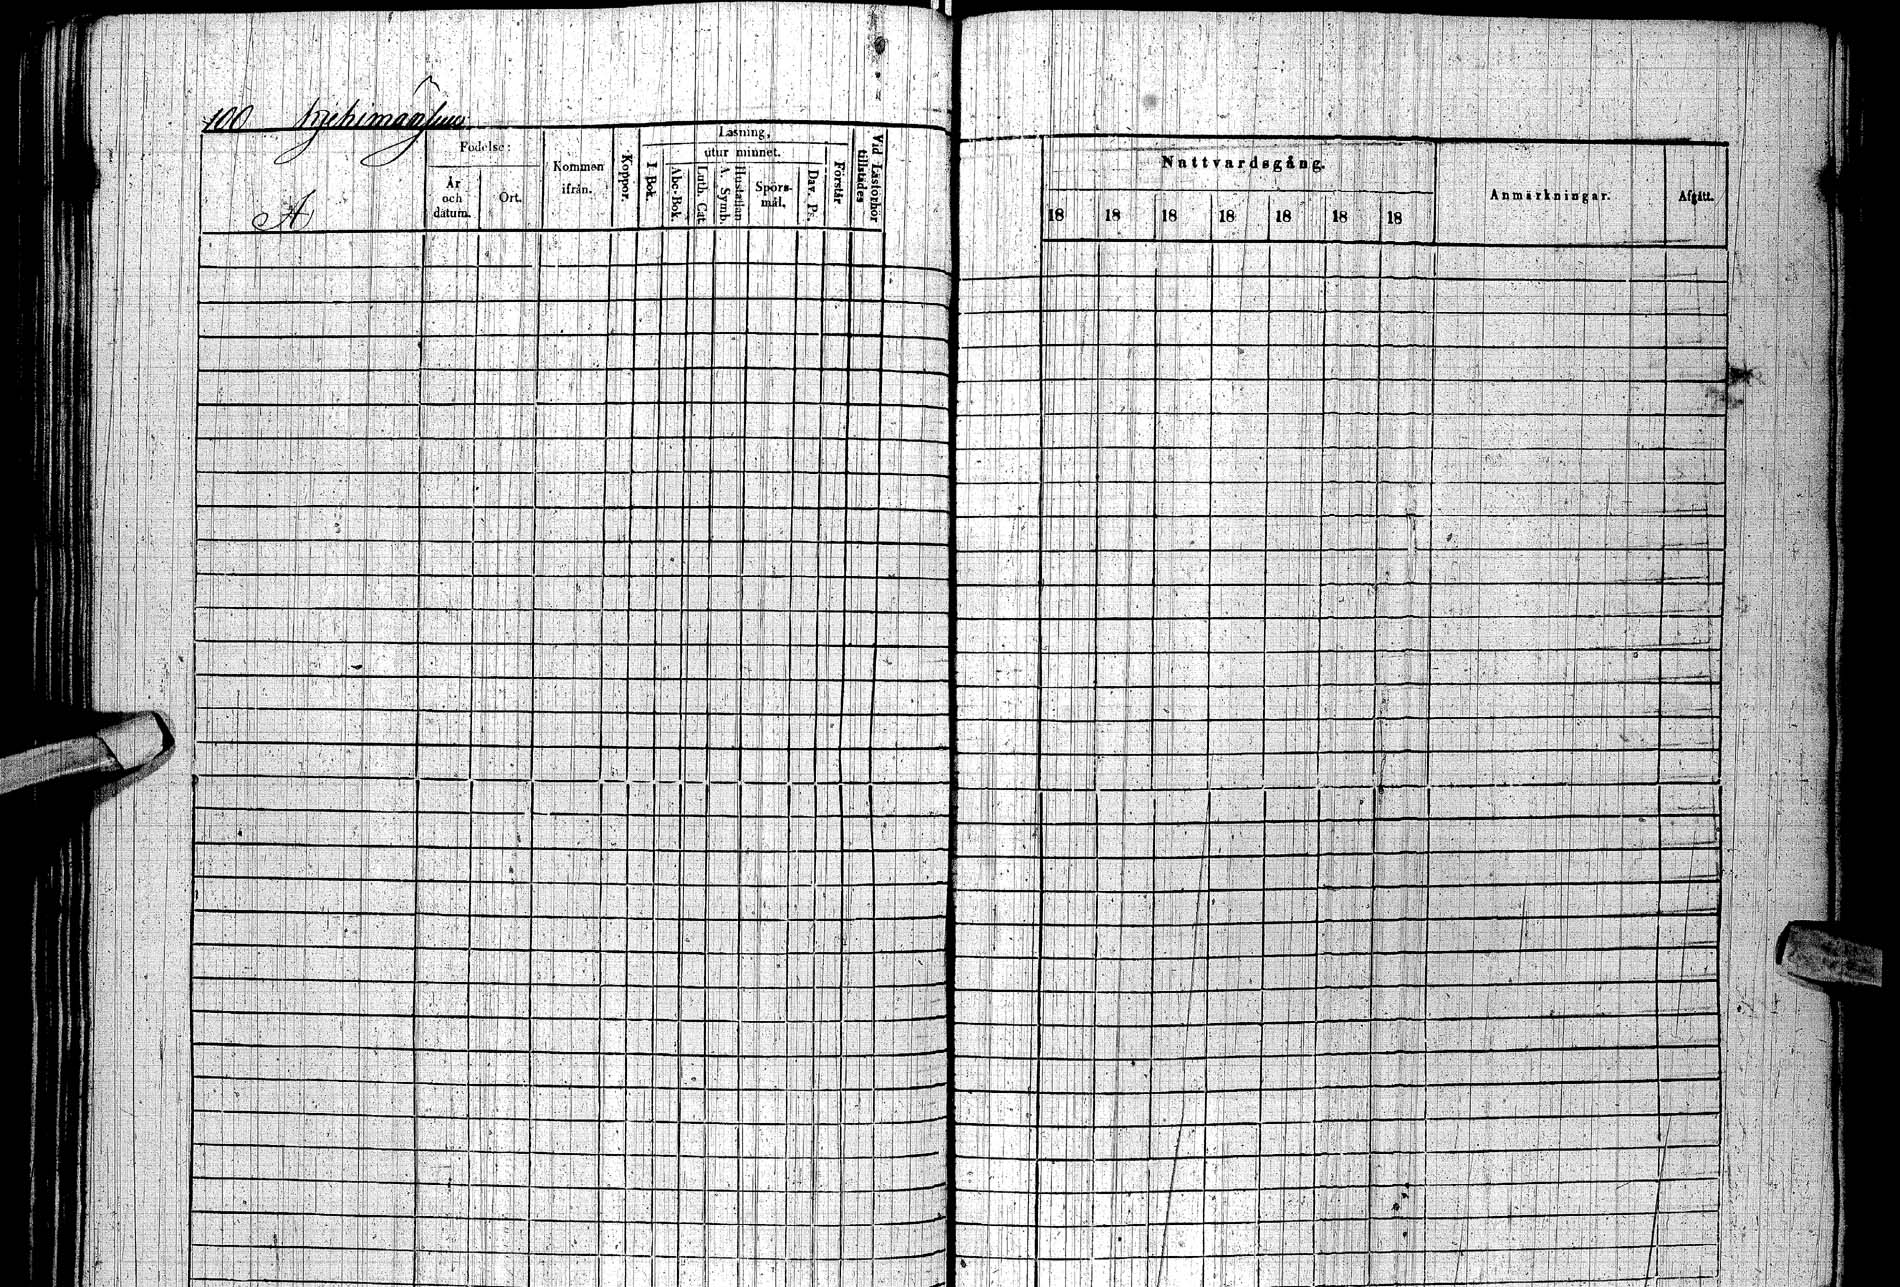 100
A
Födelse:
År
och
datum.
Ort.
Kommen
ifrån.
Koppor.
Läsning,
I Bok.
utur minnet.
Abc-Bok.
Luth. Cat.
A. Symb.
Hustaflan
Spörs-
mål.
Dav. Ps.
Förstår
Vid Läsförhör
tillstädes
Nattvardsgång.
18 18 18 18 18 18 18
Anmärkningar.
Afgått.